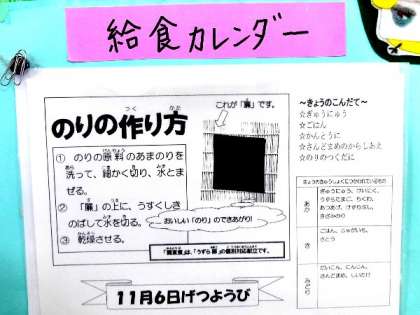 給食カレンダー
これが「簾」です。
のりの作り方
つく
かた
① のりの原料のあまのりを
洗って、細かく切り、水とま
ぜる。
② 「簾」の上に、うすくしき
のばして水を切る。
③ 乾燥させる。
おいしい「のり」のできあがり!
～きょうのこんだて～
☆ぎゅうにゅう
☆ごはん
☆かんとうに
☆さんどまめのからしあえ
☆のりのつくだに
あか
ぎゅうにゅう、けいにく、
うずらたまご、ちくわ、
あつあげ、けずりぶし、
きざみのり
き
ごはん、じゃがいも、
さとう
みどり
だいこん、にんじん、
さんどまめ、しいたけ
11月6日げつようび